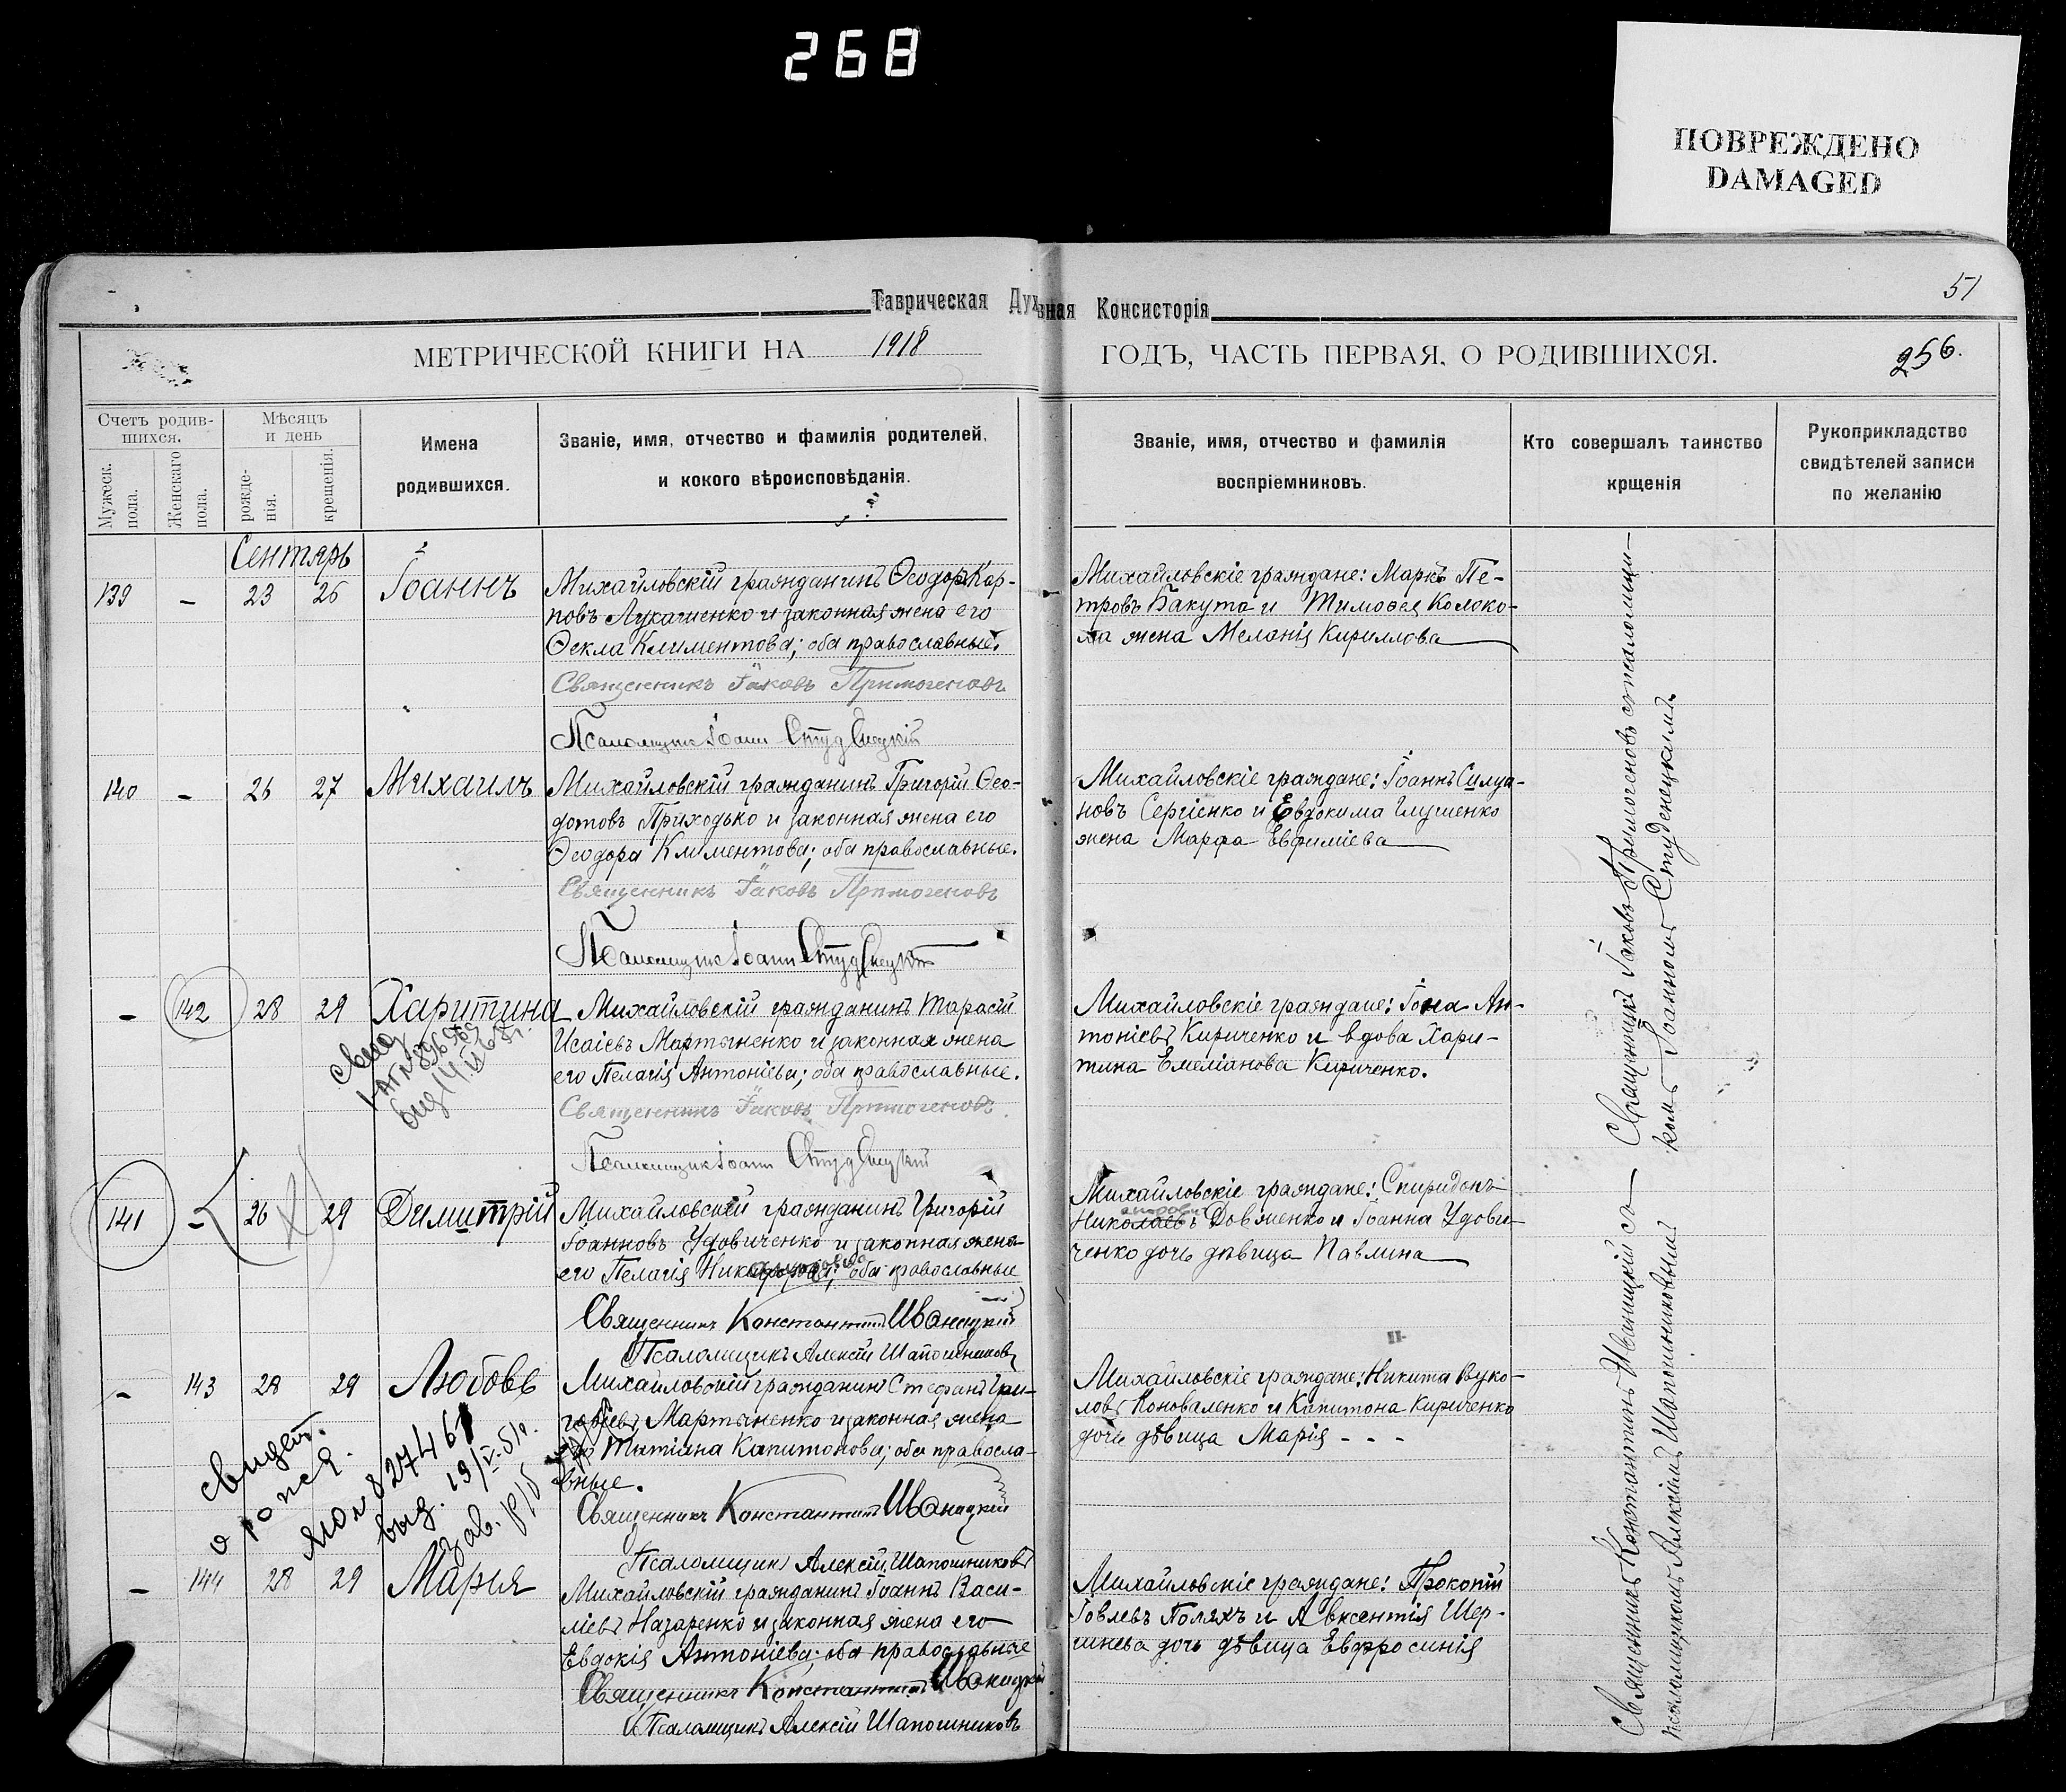 268
ПОВРЕЖДЕНО
DAMAGED
51
Таврическая Дух
вная Консисторія
МЕТРИЧЕСКОЙ КНИГИ НА 1918
ГОДЪ, ЧАСТЬ ПЕРВАЯ, О РОДИВШИХСЯ.
256.
Счетъ родив-
шихся.
Мужеск.
пола.
Женскаго
пола.
Мѣсяцъ
и день
рожде-
нія.
крещенія.
Имена
родившихся.
Званіе, имя, отчество и фамилія родителей,
и кокого вѣроисповѣданія.
Званіе, имя, отчество и фамилія
воспріемниковъ.
Кто совершалъ таинство
крщенія
Рукоприкладство
свидѣтелей записи
по желанію
Сентярь
139 - 23 25 Іоаннъ
Михайловскій гражданинъ Ѳеодоръ Кар-
повъ Лукашенко и законная жена его
Ѳекла Климентова; оба православные.
Священникъ Іаковъ Примогеновъ
Псаломщик Іоанн Студенецкій
Михайловскіе граждане: Маркъ Пе-
тровъ Бакута и Тимоѳея Колоко-
ла жена Меланія Кириллова
140 - 26 27 Михаилъ
Михайловскій гражданинъ Григорій Ѳео-
дотовъ Приходько и законная жена его
Ѳеодора Климентова; оба православные.
Священникъ Іаковъ Примогеновъ
Псаломщик Іоанн Студенецкій
Михайловскіе граждане: Іоаннъ Силуа-
новъ Сергіенко и Евдокима Глушенко
жена Марфа Евфиміева
- 142 28 29 Харитина
Михайловскій гражданинъ Тарасій
Исаіевъ Мартыненко и законная жена
его Пелагія Антоніева; оба православные.
Священникъ Іаковъ Примогеновъ.
Псаломщик Іоанн Студенецкій
Михайловскіе граждане: Іона Ан-
тоніевъ Кириченко и вдова Хари-
тина Емеліанова Кириченко.
141 - 26 29 Димитрій
Михайловскій гражданинъ Григорій
Іоанновъ Удовиченко и законная жена
его Пелагія оба православные
Священникъ Константинъ Иваницкій
Псаломщикъ Алексій Шапошниковъ
Михайловскіе граждане: Спиридонъ
Николаевъ Довженко и Іоанна Удови-
ченко дочь дѣвица Павлина
- 143 28 29 Любовь
Михайловскій гражданинъ Стефанъ Гри-
горіевъ Мартыненко и законная жена
его Татіана Капитонова; оба правосла-
вные.
Священникъ Константинъ Иваницкій
Псаломщикъ Алексій Шапошниковъ
Михайловскіе граждане: Никита Вуко-
ловъ Коноваленко и Капитона Кириченко
дочь дѣвица Марія - - -
свидет.
выд. 19/V-51г.
- 144 28 29 Марія
Михайловскій гражданинъ Іоаннъ Васи-
ліевъ Назаренко и законная жена его
Евдокія Антоніева; оба православные
Священникъ Константинъ Иваницкій
Псаломщикъ Алексій Шапошниковъ
Михайловскіе граждане: Прокопій
Іовлевъ Поляхъ и Авксентія Шер-
шнева дочь дѣвица Евфросинія
Священникъ Іаковъ Примогеновъ съ псаломщи-
комъ Іоанномъ Студенецкимъ.
Священникъ Константинъ Иваницкій съ
псаломщикомъ Алексіемъ Шапошниковымъ